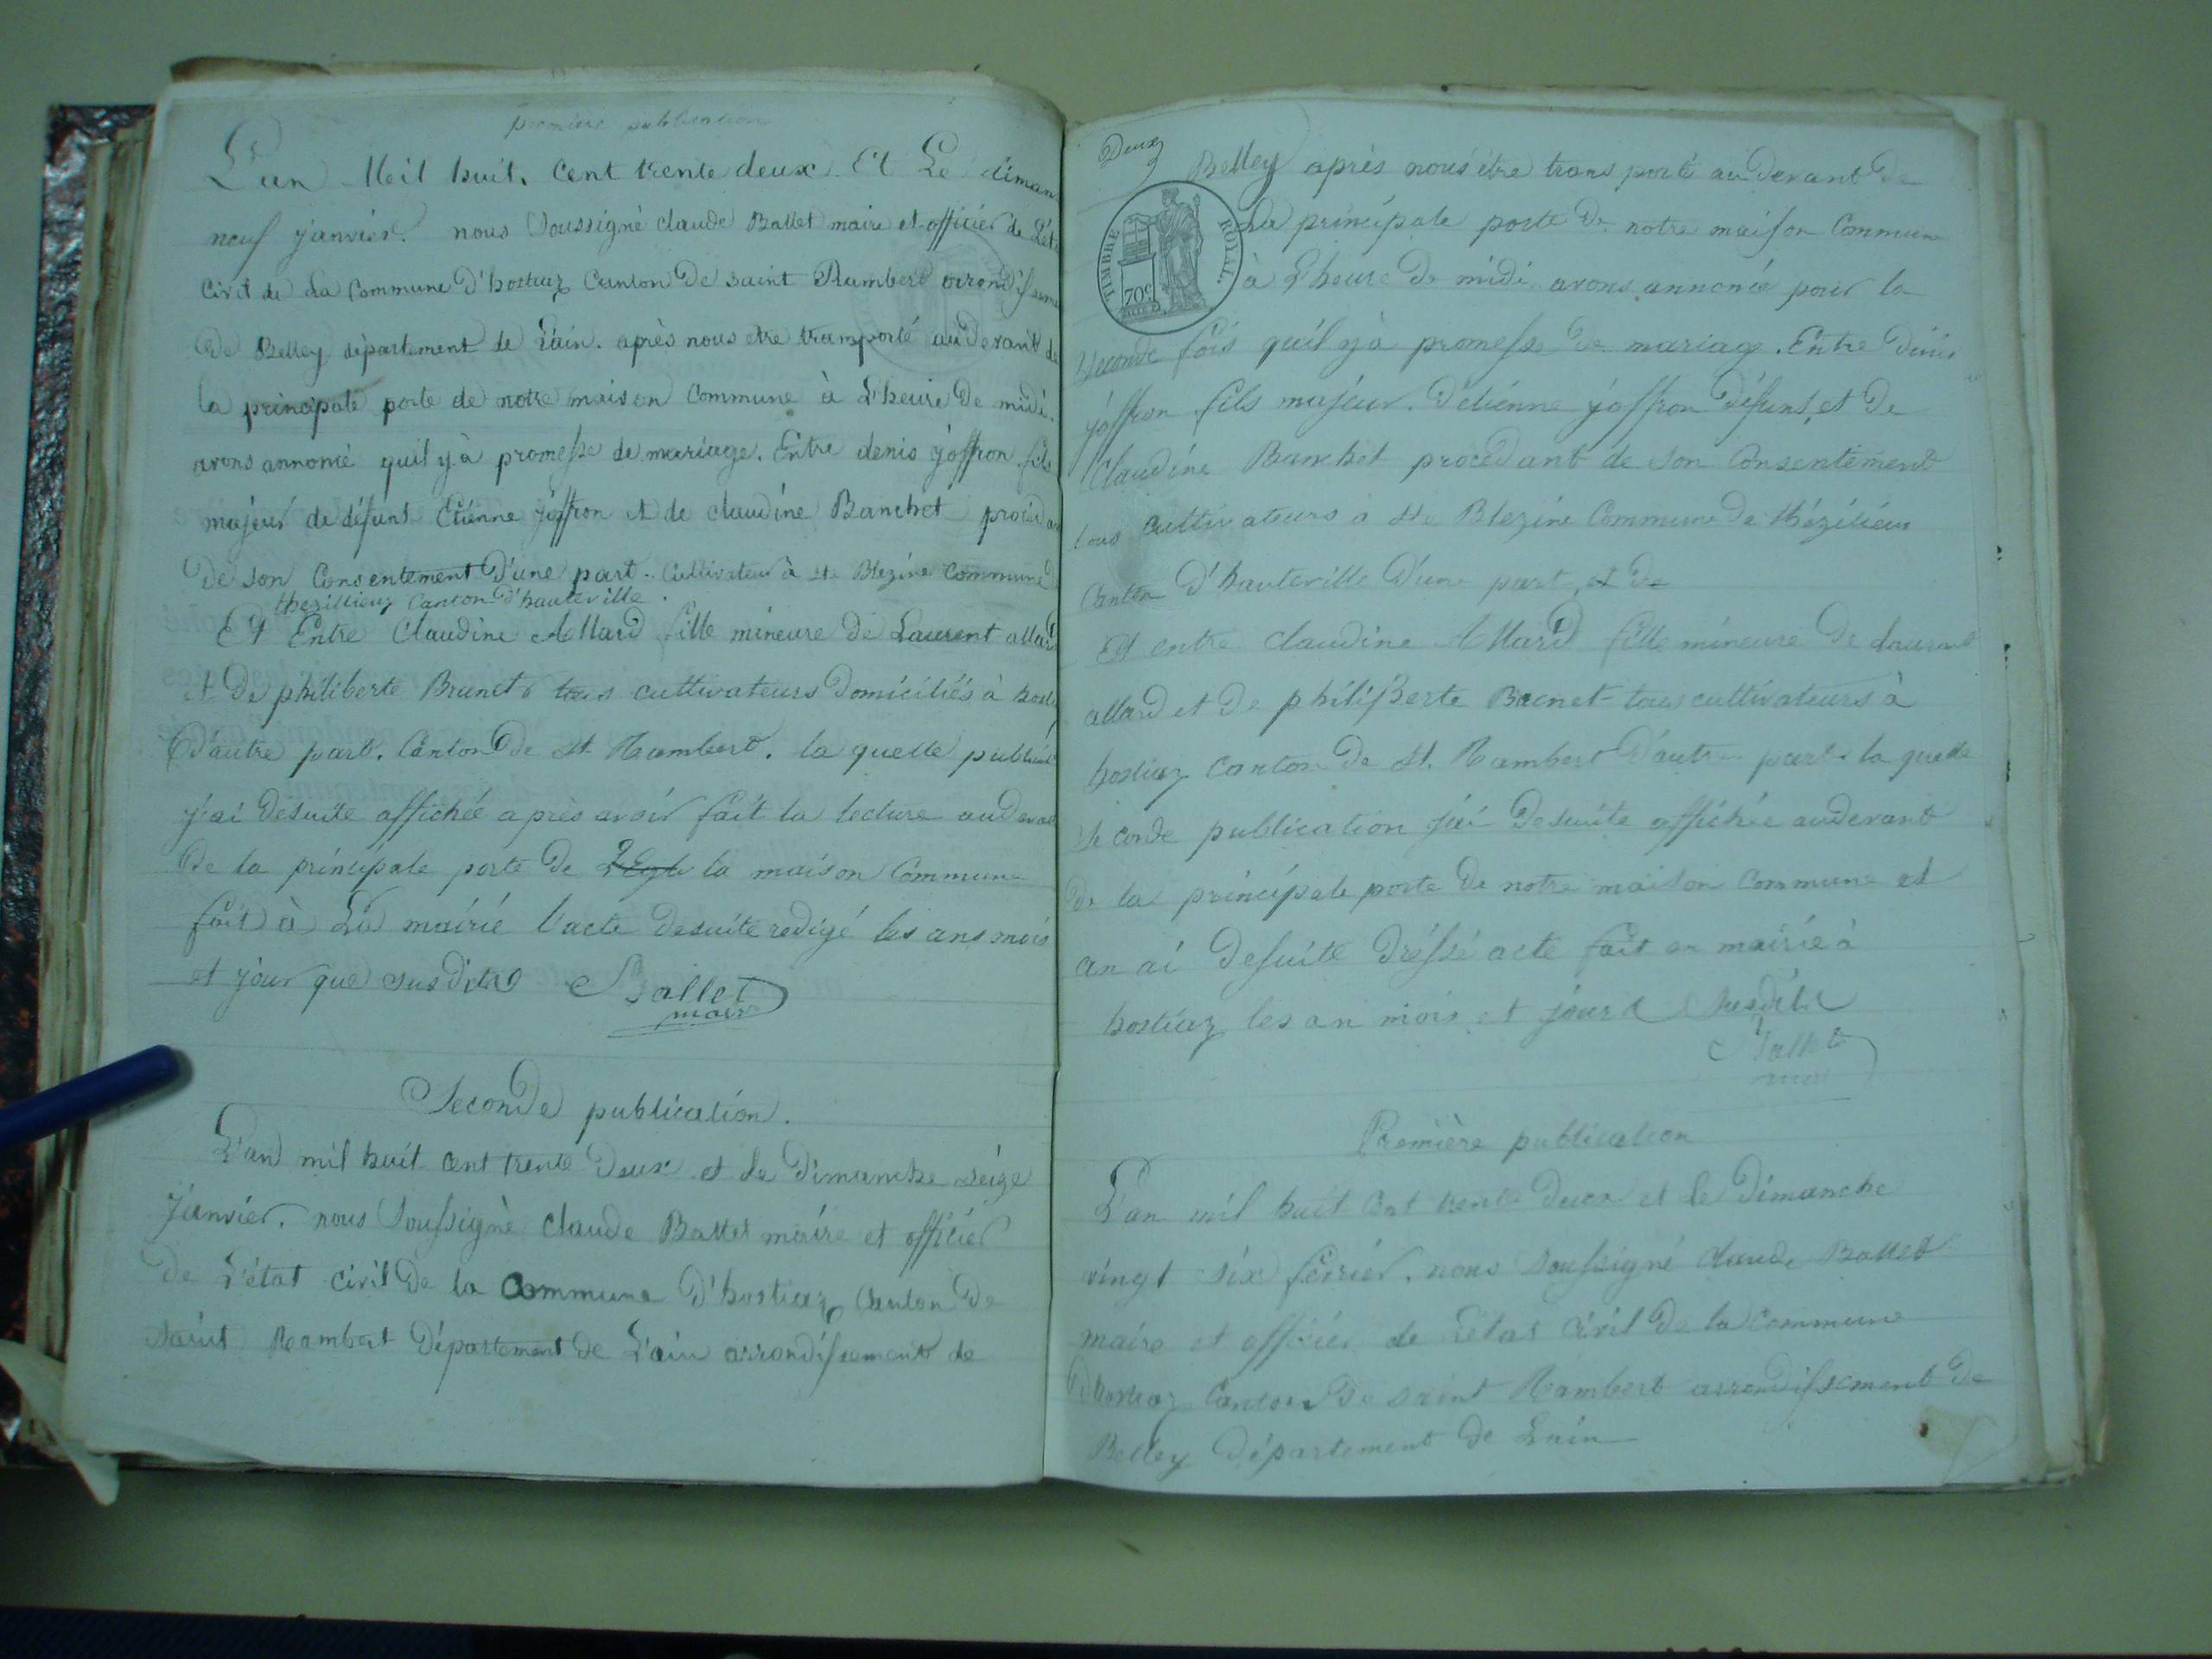 première publication
L'an Meil huit. Cent trente deux Et Le diman
neuf janvier. nous soussigné claude Ballet maire et officier de L'ét
civil de La Commune D'hostiaz Canton De saint Rambert arrondissem
De Belley département de L'ain. après nous etre transporté audevant de
la principale porte de notre maison Commune à L'heure De midi.
avons annoncé quil y à promesse de mariage. Entre denis joffron fils
majeur de défunt Etienne joffron et de claudine Banchet procédan
De son Consentement D'une part. Cultivateur à ste Blezine Commune
thezillieux Canton D'hauteville.
Et Entre Claudine Allard fille mineure de Laurent allard
et De philiberte Brunet tous cultivateurs Domiciliés à hosti
D'autre part. Canton De St Rambert. la quelle public
j'ai desuite affichée après avoir fait la lecture audevan
De la principale porte De L'Egli la maison Commune
fait à La mairie l'acte desuite redigé les ans mois
et jour que susdits Ballet
maire
Seconde publication.
L'an mil huit cent trente Deux et Le Dimanche seize
Janvier. nous Soussigné claude Ballet maire et officier
De L'état civil De la Commune D'hostiaz Canton De
saint Rambert Département De L'ain arrondissement de
Deux
Belley après nous être transporté audevant De
La principale porte De notre maison Commune
TIMBRE ROYAL.
70c
à L'heure De midi avons annoncé pour la
seconde fois quil y à promesse De mariage. Entre Dénis
joffron fils majeur. D'étienne joffron Défunt et De
Claudine Banchet procédant de son Consentement
tous cultivateurs à ste Blezine Commune De thézilieux
Canton D'hauteville D'une part, et De
Et entre claudine Allard fille mineure De Laurent
allard et De philiberte Brunet tous cultivateurs à
hostiaz Canton De St. Rambert D'autre part. la quelle
seconde publication j'ai Desuite affichée audevant
De la principale porte De notre maison Commune et
an ai Desuite Dréssé acte fait en mairie à
hostiaz les an mois et jour Susdit
Ballet
maire
Première publication
L'an mil huit Cent trente Deux et le Dimanche
vingt six février. nous soussigné claude Ballet
maire et officier de L'état Civil De la Commune
D'hostiaz Canton De saint Rambert arrondissement De
Belley Département De Lain